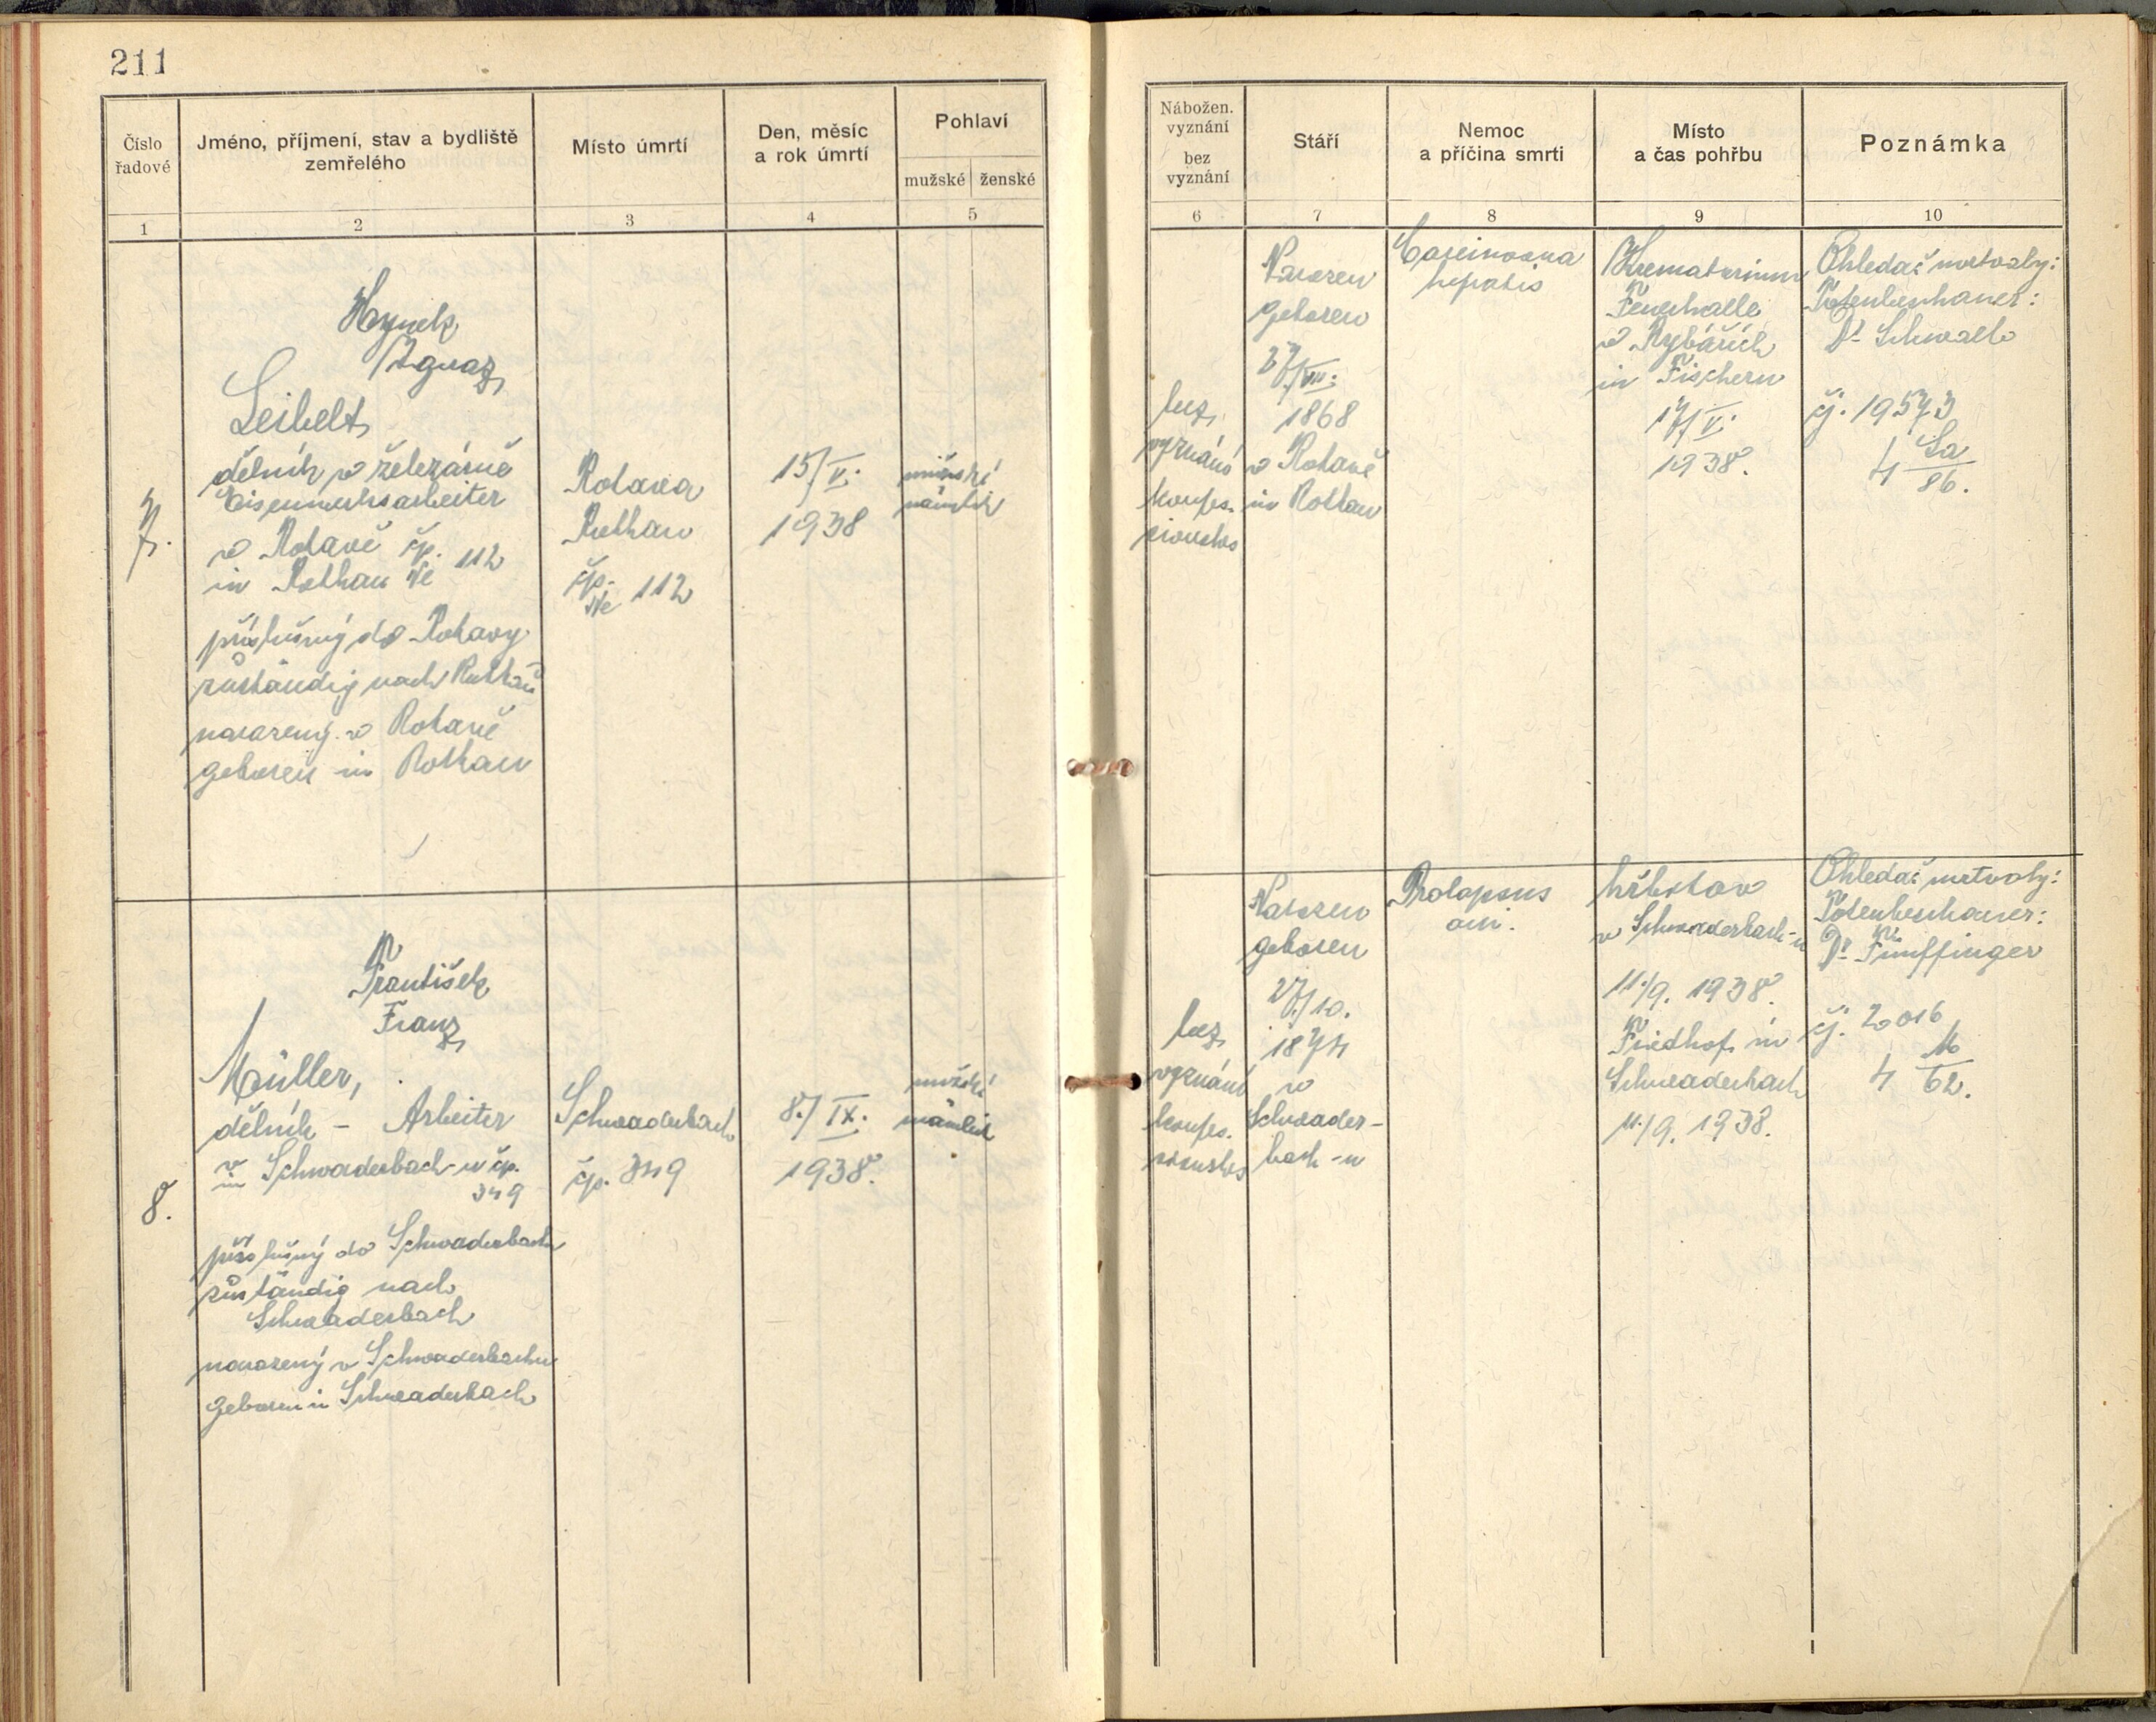 211
Číslo
řadové
Jméno, příjmení, stav a bydliště
zemřelého
Místo úmrtí
Den, měsíc
a rok úmrtí
Pohlaví
mužské
ženské
1
2
3
4
5
Nábožen.
vyznání
bez
vyznání
Stáří
Nemoc
a příčina smrti
Místo
a čas pohřbu
Poznámka
6
7
8
9
10
7.
Hynek
Ignaz
Leibelt
dělník v železárně
Eisenwerksarbeiter
v Rotavě čp. 112
in Rothau №
příslušný do Rotavy
zuständig nach Rothau
narozený v Rotavě
geboren in Rothau
Rotava
Rothau
čp. 112
№
15/V.
1938
mužské
männlich
bez
vyznání
konfes-
sionslos
Narozen
geboren
27/VIII.
1868
v Rotavě
in Rothau
Carcinoma
hepatis
Krematorium
Feuerhalle
v Rybářích
in Fischern
17/V.
1938.
Ohledač mrtvoly:
Totenbeschauer:
Dr Schwalb
čj. 19573
4 La
86.
8.
František
Franz
Müller,
dělník - Arbeiter
v Schwaderbach-u čp.
in
349
příslušný do Schwaderbach
zuständig nach
Schwaderbach
narozený v Schwaderbachu
geboren in Schwaderbach
Schwaderbach
čp. 349
8./IX.
1938.
mužské
männlich
bez
vyznání
konfes-
sionslos
Narozen
geboren
27/10.
1874
v
Schwader-
bach-u
Prolapsus
ani.
hřbitov
v Schwaderbach-u
11./9. 1938.
Friedhof in
Schwaderbach
11./9. 1938.
Ohledač mrtvoly:
Totenbeschauer:
Dr Fünffinger
čj. 20016
4 M
62.